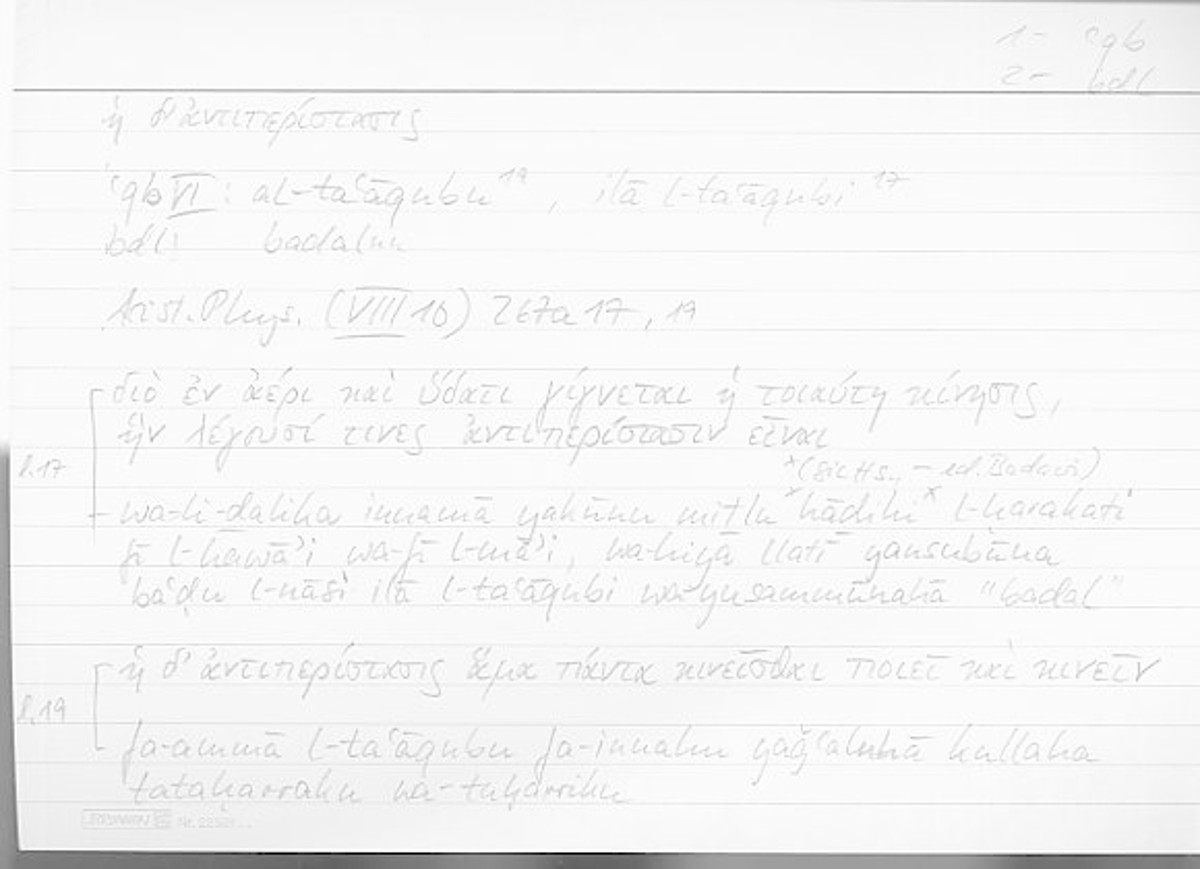 1- ʿqb
2- bdl
ἡ δ' ἀντιπερίστασις
ʿqb VI: al-taʿāqubu 19, ilā l-taʿāqubi 17
bdl: badalun
Arist. Phys. (VIII 10) 267a 17, 19
διὸ ἐν ἀέρι καὶ ὕδατι γίγνεται ἡ τοιαύτη κίνησις,
ἣν λέγουσί τινες ἀντιπερίστασιν εἶναι
l. 17
x(sic Hs., – ed. Badawi)
wa-li-ḏalika innamā yakūnu miṯlu xhāḏihix l-ḥarakati
fī l-hawāʾi wa-fī l-māʾi, wa-hiya llatī yansubūna
baʿḍu l-nāsi ilā l-taʿāqubi wa-yusammūnahā "badal"
ἡ δ' ἀντιπερίστασις ἅμα πάντα κινεῖσθαι ποιεῖ καὶ κινεῖν
l. 19
fa-ammā l-taʿāqubu fa-innahu yaǧʿaluhā kullaha
tataḥarraku wa-tuḥarriku